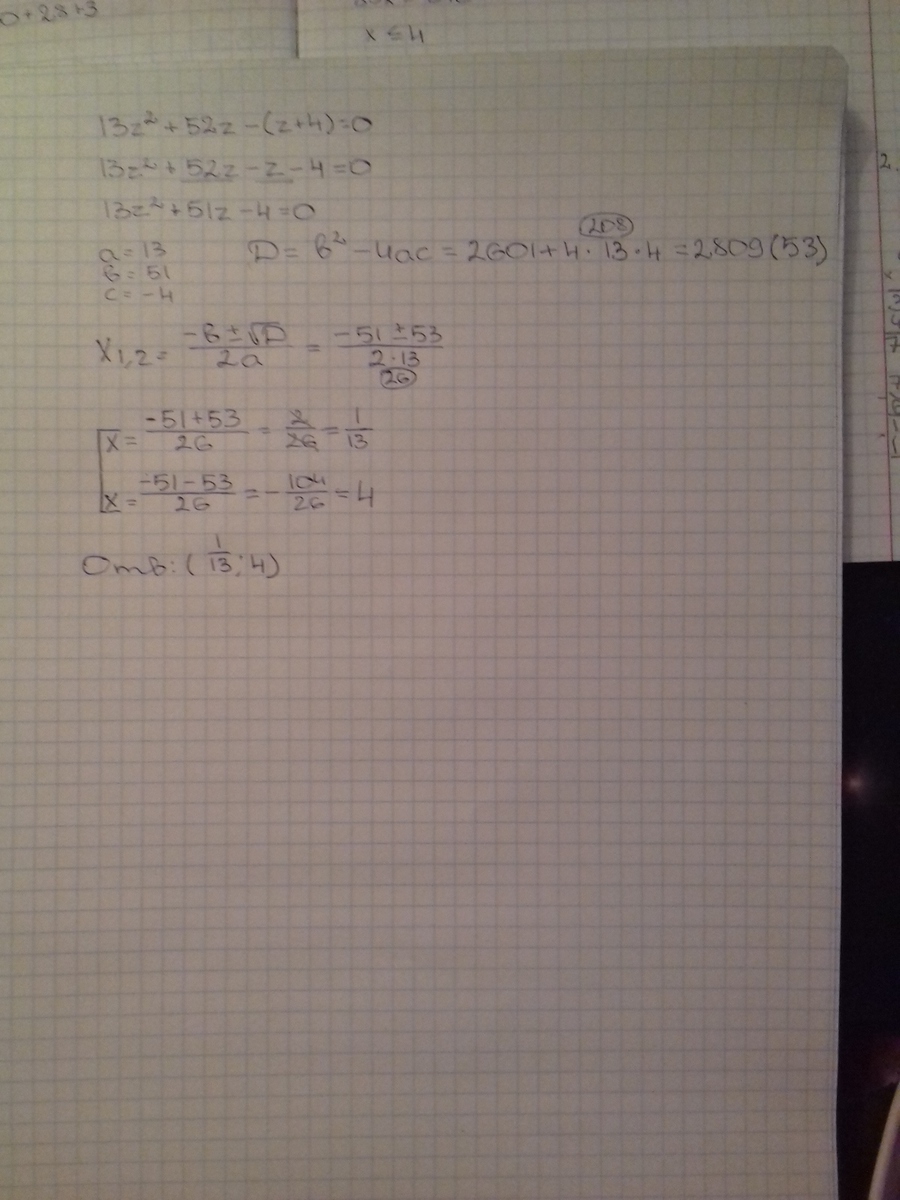 0+28+3
x ≤ 4
13z² + 52z - (z+4) = 0
13z² + 52z - z - 4 = 0
13z² + 51z - 4 = 0
a = 13
в = 51
c = -4
208
D = в² - 4ac = 2601 + 4 · 13 · 4 = 2809 (53)
x₁,₂ = (-в ± √D)/(2a) = (-51 ± 53)/(2·13)
26
x = (-51+53)/26 = 2/26 = 1/13
x = (-51-53)/26 = -104/26 = 4
Отв: (1/13; 4)
2.